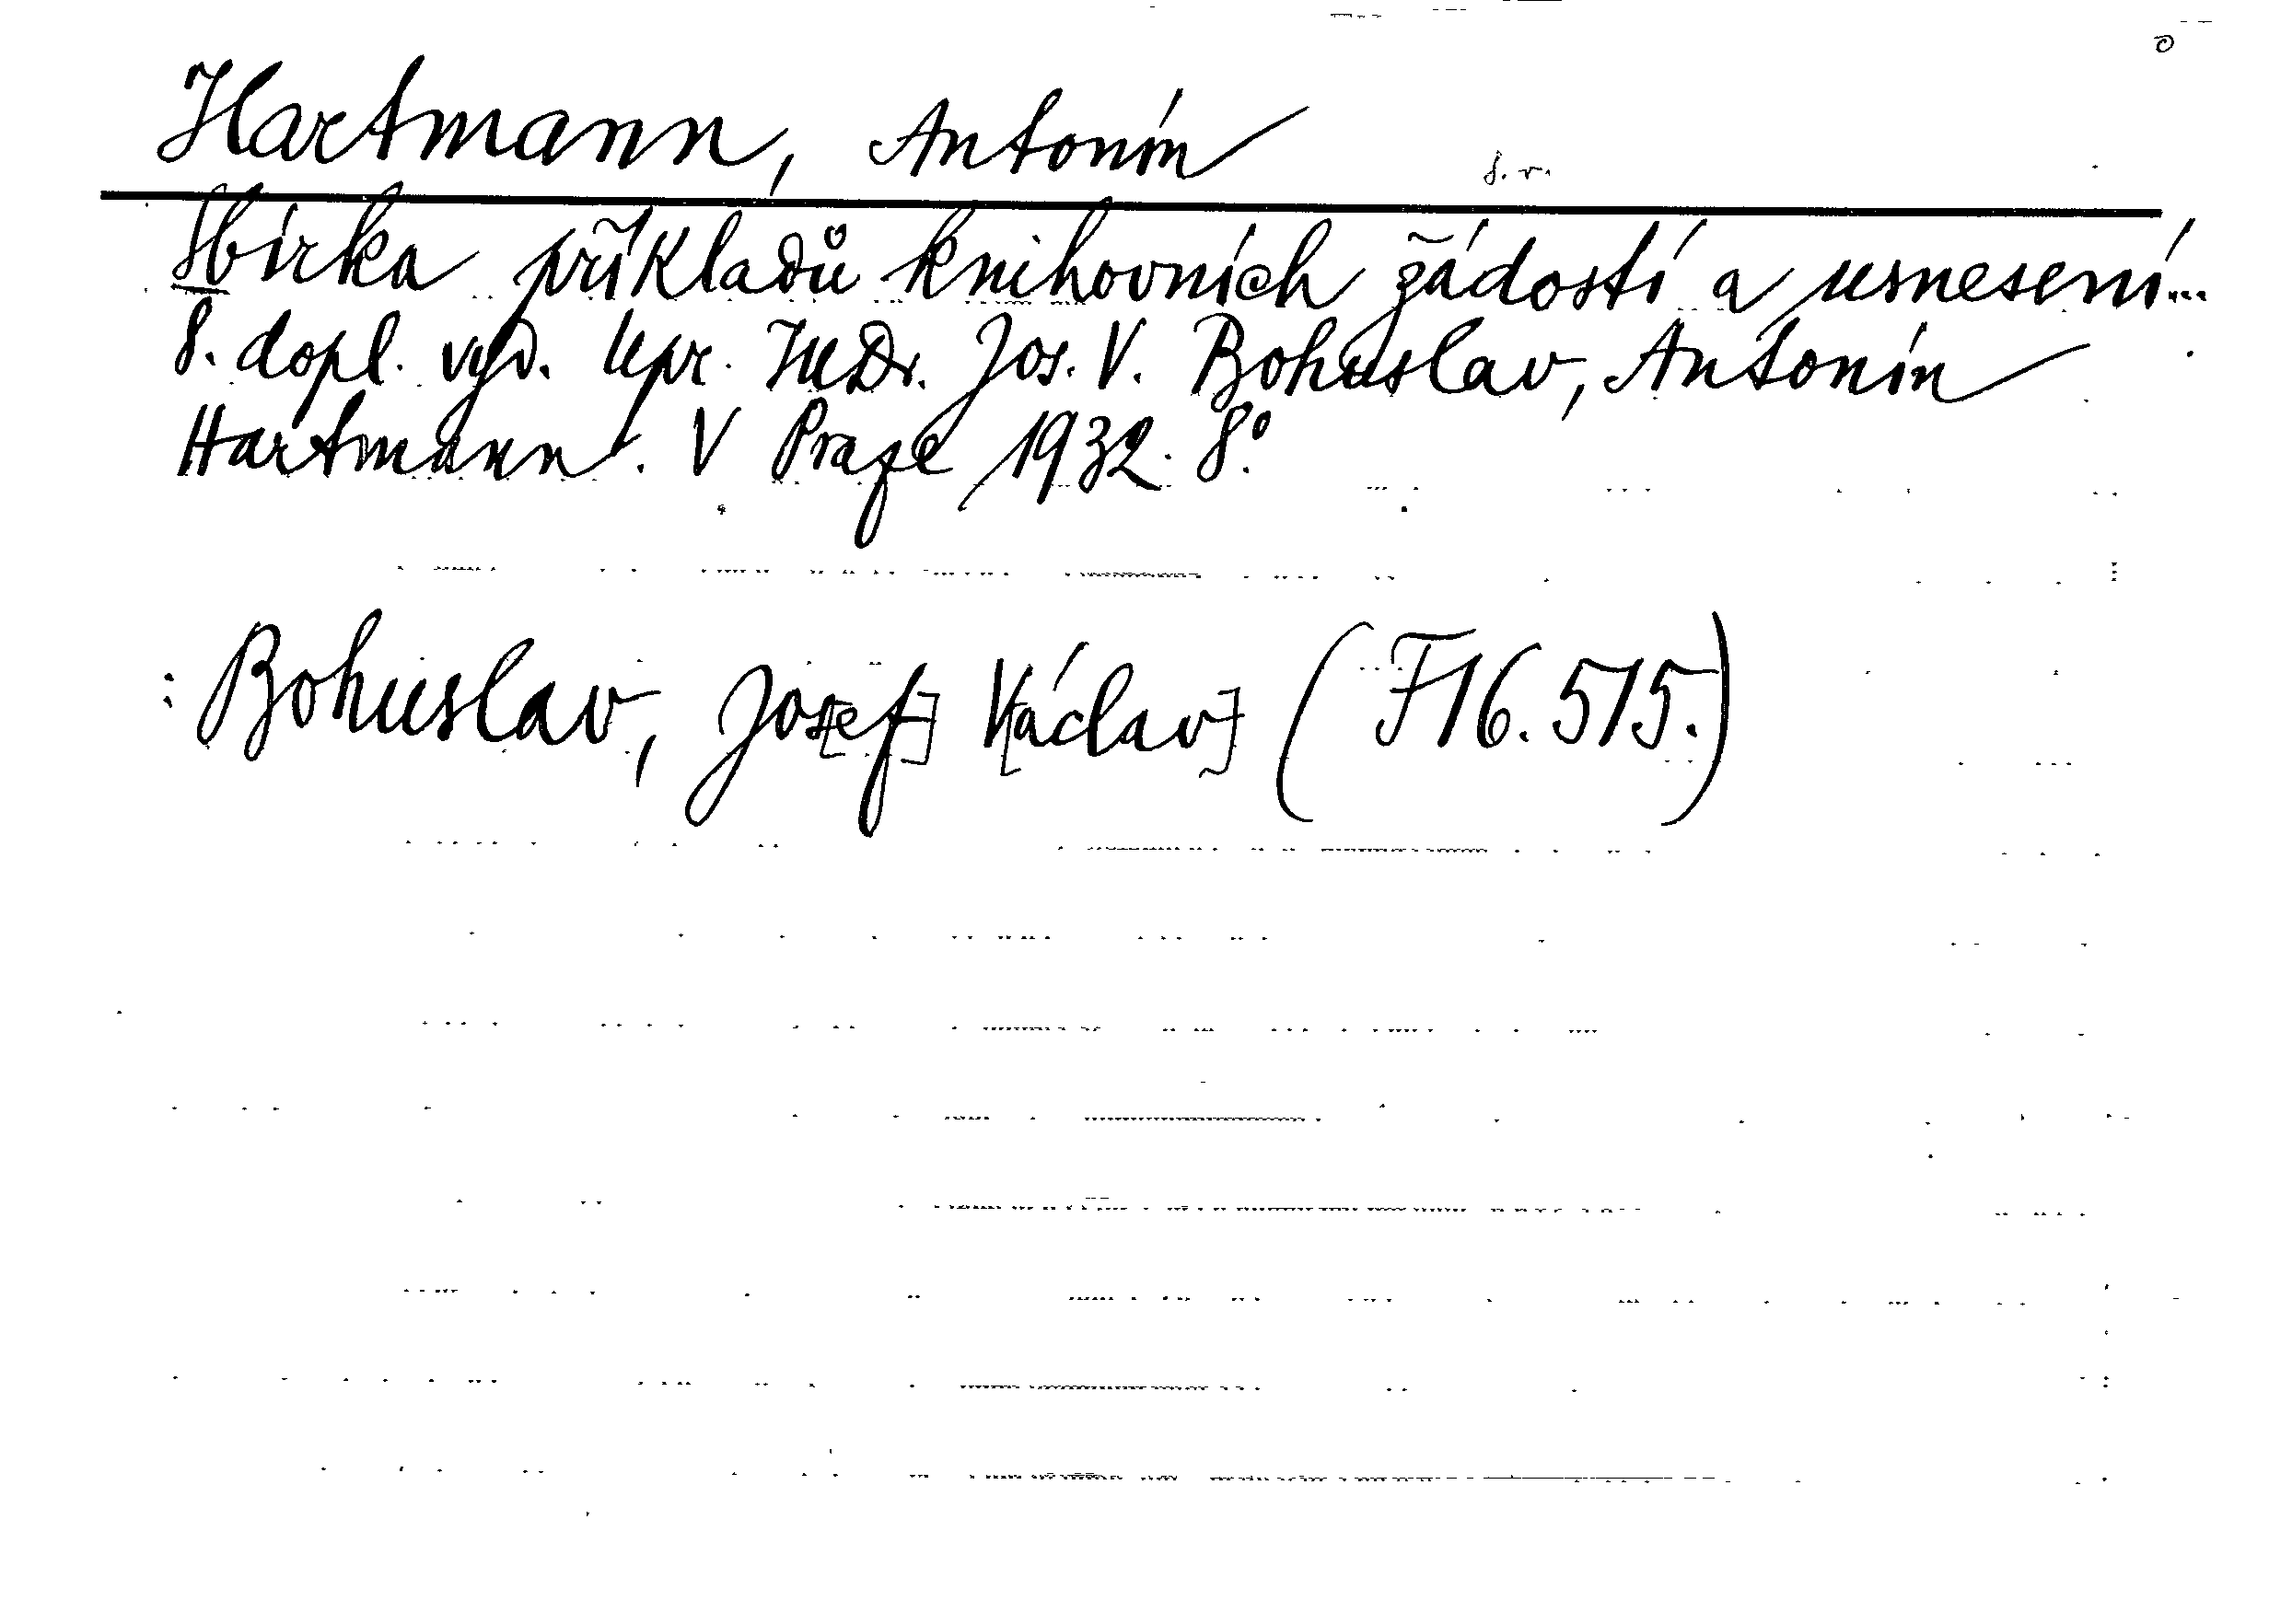 Hartmann, Antonín
s. r.
Sbírka příkladů knihovních žádostí a usnesení...
8. dopl. vyd. Upr. JUDr. Jos. V. Bohuslav, Antonín
Hartmann. V Praze 1932. 8°.
: Bohuslav, Jos[ef] V[áclav] (F 16.515.)